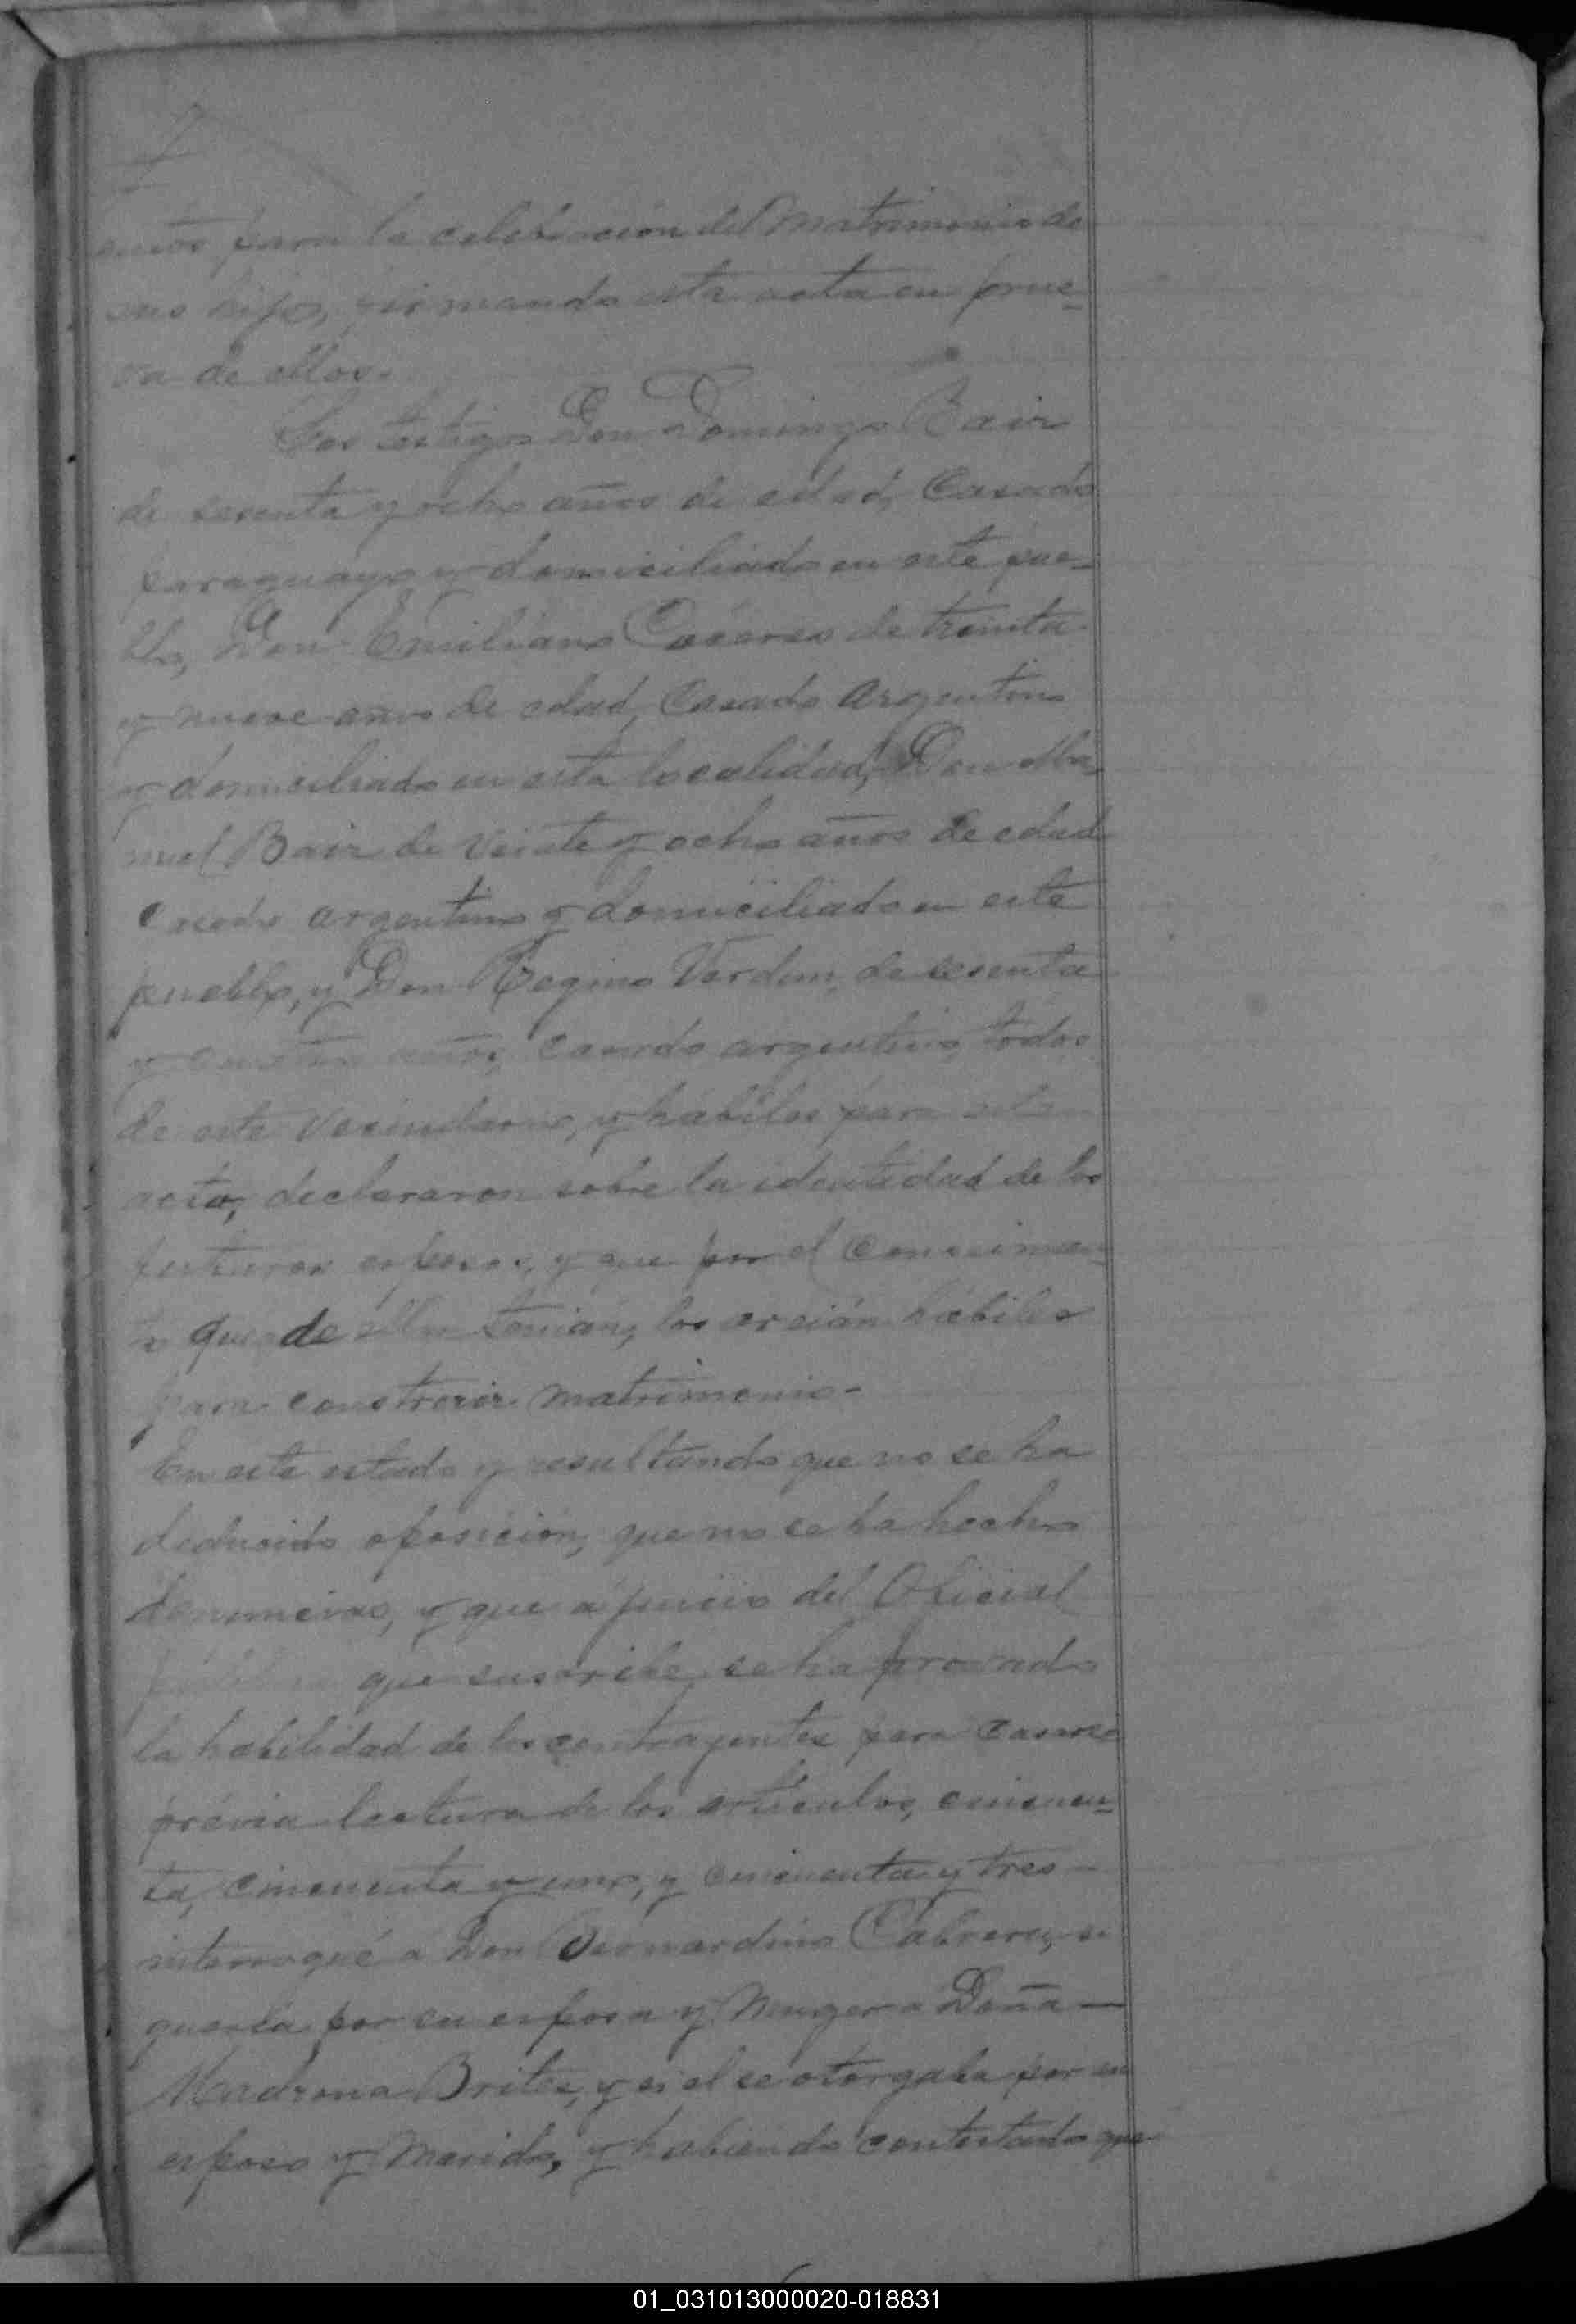 para la celebracion del Matrimonio de
sus hijos, firmando esta acta en prue-
va de ellos.
Los testigos Don Domingo Bair
de sesenta y ocho años de edad, Casado
paraguayo y domiciliado en este pue-
blo, Don Emiliano Caceres de treinta
y nueve años de edad, Casado Argentino
y domiciliado en esta localidad, Don Ma-
nuel Bair de veinte y ocho años de edad
Casado argentino y domiciliado en este
pueblo, y Don Regino Verdun, de sesenta
y años, casado argentino, todos
de este vecindario, y habiles para este
acto, declararon sobre la identidad de los
futuros esposos, y que por el conocimien-
to que de ellos tenian, los creián habiles
para contraer matrimonio-
En este estado y resultando que no se ha
deducido oposición, que no se ha hecho
denuncias, y que a juicio del Oficial
público que suscribe, se ha provado
la habilidad de los contrayentes para casarse
prévia lectura de los articulos, cincuen-
ta, cincuenta y uno, y cincuenta y tres-
interrogué a Don Bernardino Cabrera, si
queria por su esposa y Muger a Doña-
Madrona Brites, y si el se otorgaba por su
esposo y Marido, y habiendo contestado que
01_031013000020-018831